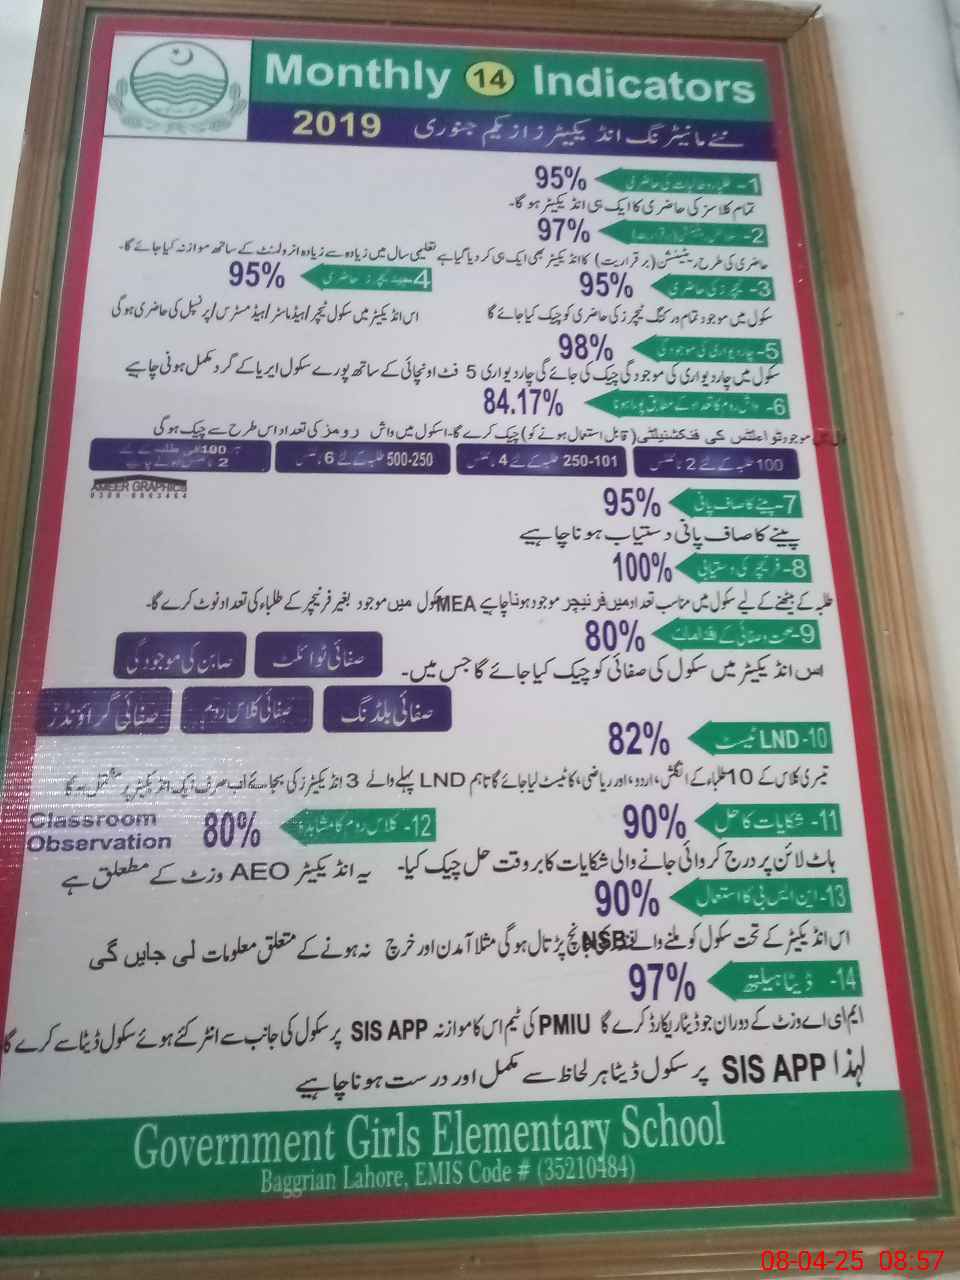 Monthly 14 Indicators
2019 نئے مانیٹرنگ انڈیکیٹرز از یکم جنوری
1- طلباء و طالبات کی حاضری 95%
تمام کلاسز کی حاضری کا ایک ہی انڈیکیٹر ہو گا۔
2- 97%
حاضری کی طرح ریٹینشن (برقراریت) کا انڈیکیٹر بھی ایک ہی کر دیا گیا ہے تعلیمی سال میں زیادہ سے زیادہ انرولمنٹ کے ساتھ موازنہ کیا جائے گا۔
3- ٹیچرز کی حاضری 95%
سکول میں موجود تمام ورکنگ ٹیچرز کی حاضری کو چیک کیا جائے گا
4- ہیڈ ٹیچرز حاضری 95%
اس انڈیکیٹر میں سکول ٹیچر/ہیڈ ماسٹر/ہیڈ مسٹرس/پرنسپل کی حاضری ہو گی
5- چار دیواری کی موجودگی 98%
سکول میں چار دیواری کی موجودگی چیک کی جائے گی چار دیواری 5 فٹ اونچائی کے ساتھ پورے سکول ایریا کے گرد مکمل ہونی چاہیے
6- واش روم کا تعداد کے مطابق پورا ہونا 84.17%
موجود ٹوائلٹس کی فنکشنیلٹی (قابل استعمال ہونے کو) چیک کرے گا۔ اسکول میں واش رومز کی تعداد اس طرح سے چیک ہو گی
100 طلبہ کے لئے 2 ٹائلٹس
250-101 طلبہ کے لئے 4 ٹائلٹس
500-250 طلبہ کے لئے 6 ٹائلٹس
ہر 100 طلبہ کے لئے
2 ٹائلٹس ہونے چاہیے
AMEER GRAPHICS
7- پینے کا صاف پانی 95%
پینے کا صاف پانی دستیاب ہونا چاہیے
8- فرنیچر کی دستیابی 100%
طلبہ کے بیٹھنے کے لیے سکول میں مناسب تعداد میں فرنیچر موجود ہونا چاہیے MEA سکول میں موجود بغیر فرنیچر کے طلباء کی تعداد نوٹ کرے گا۔
9- صحت و صفائی کے اقدامات 80%
اس انڈیکیٹر میں سکول کی صفائی کو چیک کیا جائے گا جس میں۔
صفائی ٹوائلٹ
صابن کی موجودگی
صفائی بلڈنگ
صفائی کلاس روم
صفائی گراؤنڈز
10- LND ٹیسٹ 82%
تیسری کلاس کے 10 طلباء کے انگلش، اردو، اور ریاضی، کا ٹیسٹ لیا جائے گا تاہم LND پہلے والے 3 انڈیکیٹرز کی بجائے اب صرف ایک انڈیکیٹر پر مشتمل ہو گا
11- شکایات کا حل 90%
ہاٹ لائن پر درج کروائی جانے والی شکایات کا بروقت حل چیک کیا۔
12- کلاس روم کا مشاہدہ 80% Classroom Observation
یہ انڈیکیٹر AEO وزٹ کے مطعلق ہے
13- این ایس بی کا استعمال 90%
اس انڈیکیٹر کے تحت سکول کو ملنے والے NSB کی جانچ پڑتال ہو گی مثلا آمدن اور خرچ نہ ہونے کے متعلق معلومات لی جایں گی
14- ڈیٹا ہیلتھ 97%
ایم ای اے وزٹ کے دوران جو ڈیٹا ریکارڈ کرے گا PMIU کی ٹیم اس کا موازنہ SIS APP پر سکول کی جانب سے انٹر کئے ہوئے سکول ڈیٹا سے کرے گا
لہذا SIS APP پر سکول ڈیٹا ہر لحاظ سے مکمل اور درست ہونا چاہیے
Government Girls Elementary School
Baggrian Lahore, EMIS Code # (35210484)
08-04-25 08:57